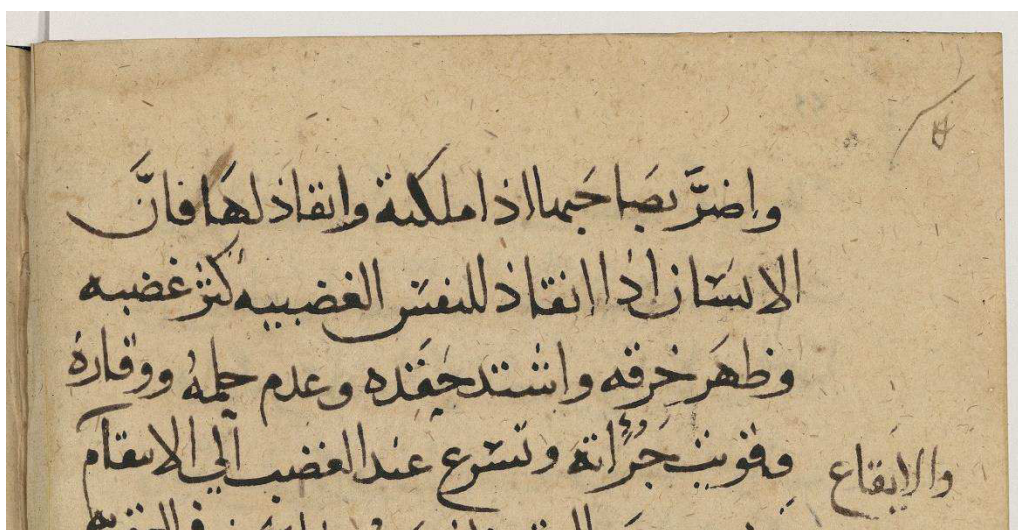 واضرَّ بصَاحبها اذا ملكته وانقاذ لهَا فانَّ
الانسَان اذا انقاذ للنفس الغضبيه كثر غضبه
وظهَر خرقه واشتد حقده وعدم حلمهُ ووقارهُ
وقويت جرُاته وتسرع عند الغضب الي الانتقام
والايقاع